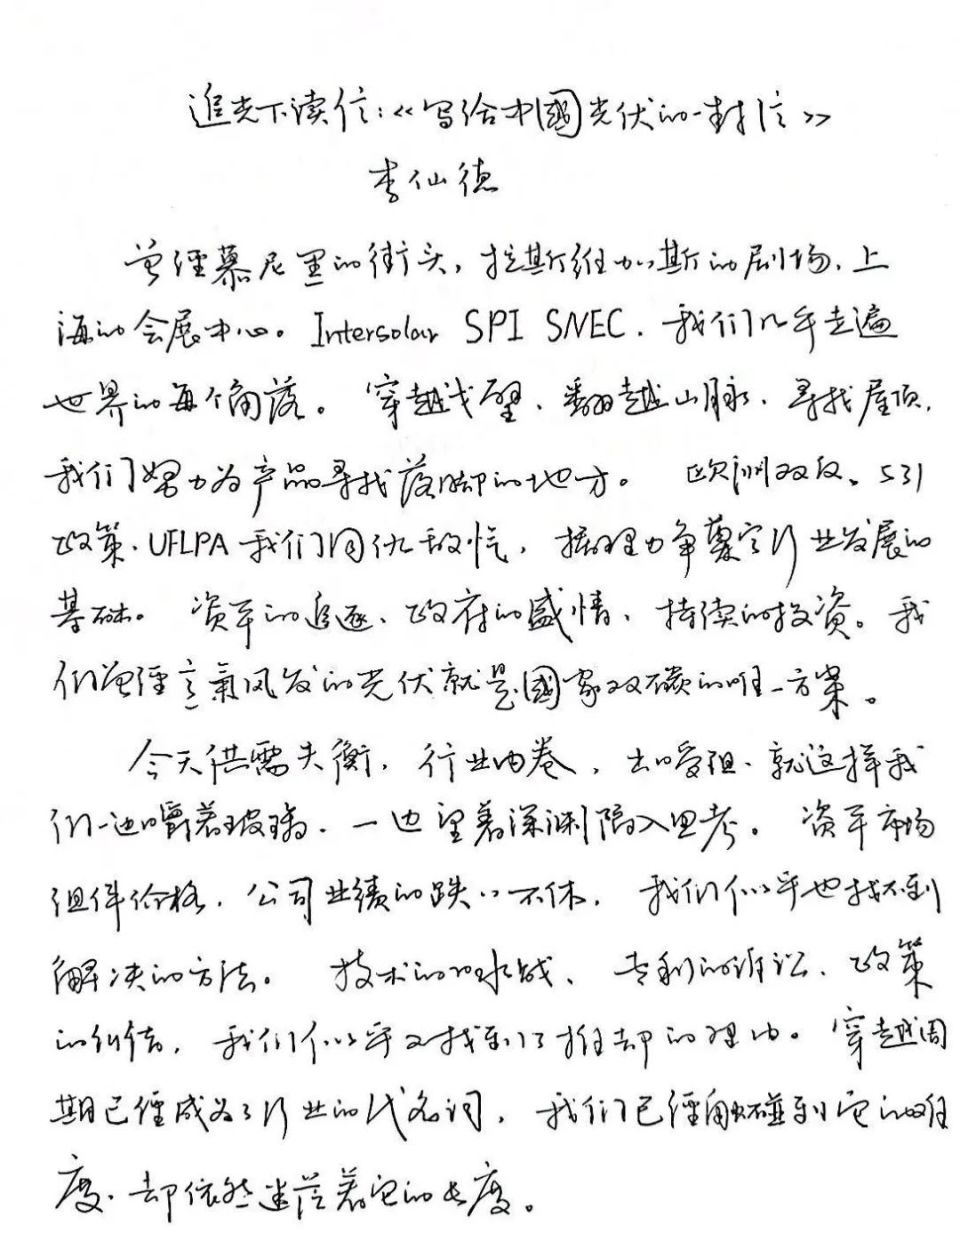 追光下读信：《写给中國光伏的一封信》
李仙德
曾经慕尼黑的街头，拉斯维加斯的剧场，上
海的会展中心。Intersolar SPI SNEC，我们几乎走遍
世界的每个角落。穿越戈壁、翻越山脉、寻找屋顶，
我们努力为产品寻找落脚的地方。欧洲双反、531
政策、UFLPA 我们同仇敌忾，据理力争奠定行业发展的
基础。资本的追逐、政府的盛情、持续的投资。我
们曾经意氣风发的光伏就是國家双碳的唯一方案。
今天供需失衡，行业内卷，出口受阻、就这样我
们一边嚼着玻璃，一边望着深渊陷入思考。资本市场
组件价格，公司业绩的跌跌不休，我们似乎也找不到
解决的方法。技术的口水战、专利的诉讼、政策
的纠结，我们似乎又找到了推却的理由。穿越周
期已经成为了行业的代名词，我们已经触碰到它的难
度、却依然迷茫着它的长度。